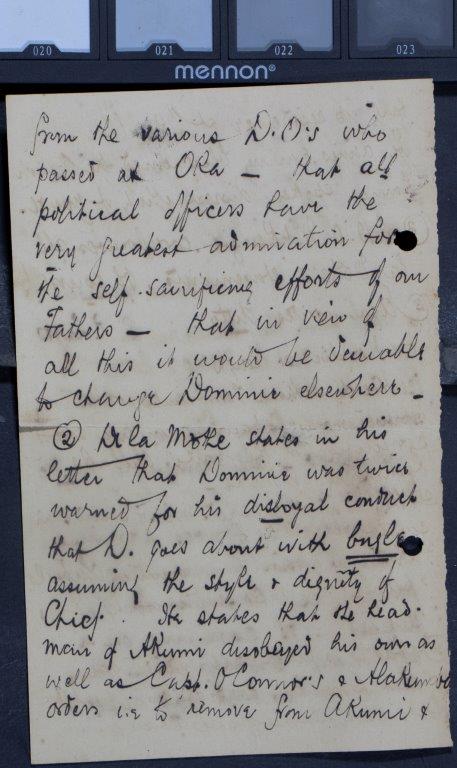 020 021 022 023
mennon®
from the various D.O's who
passed at Oka — that all
political officers have the
very greatest admiration for
the self-sacrificing efforts of our
Fathers — that in view of
all this it would be desirable
to change Dominic elsewhere —
② De la Mothe states in his
letter that Dominic was twice
warned for his disloyal conduct
that D. goes about with bugle
assuming the style & dignity of
Chief. He states that the head-
man of Akumi disobeyed his own as
well as Capt. O'Connor's &
orders i.e to remove from Akumi &